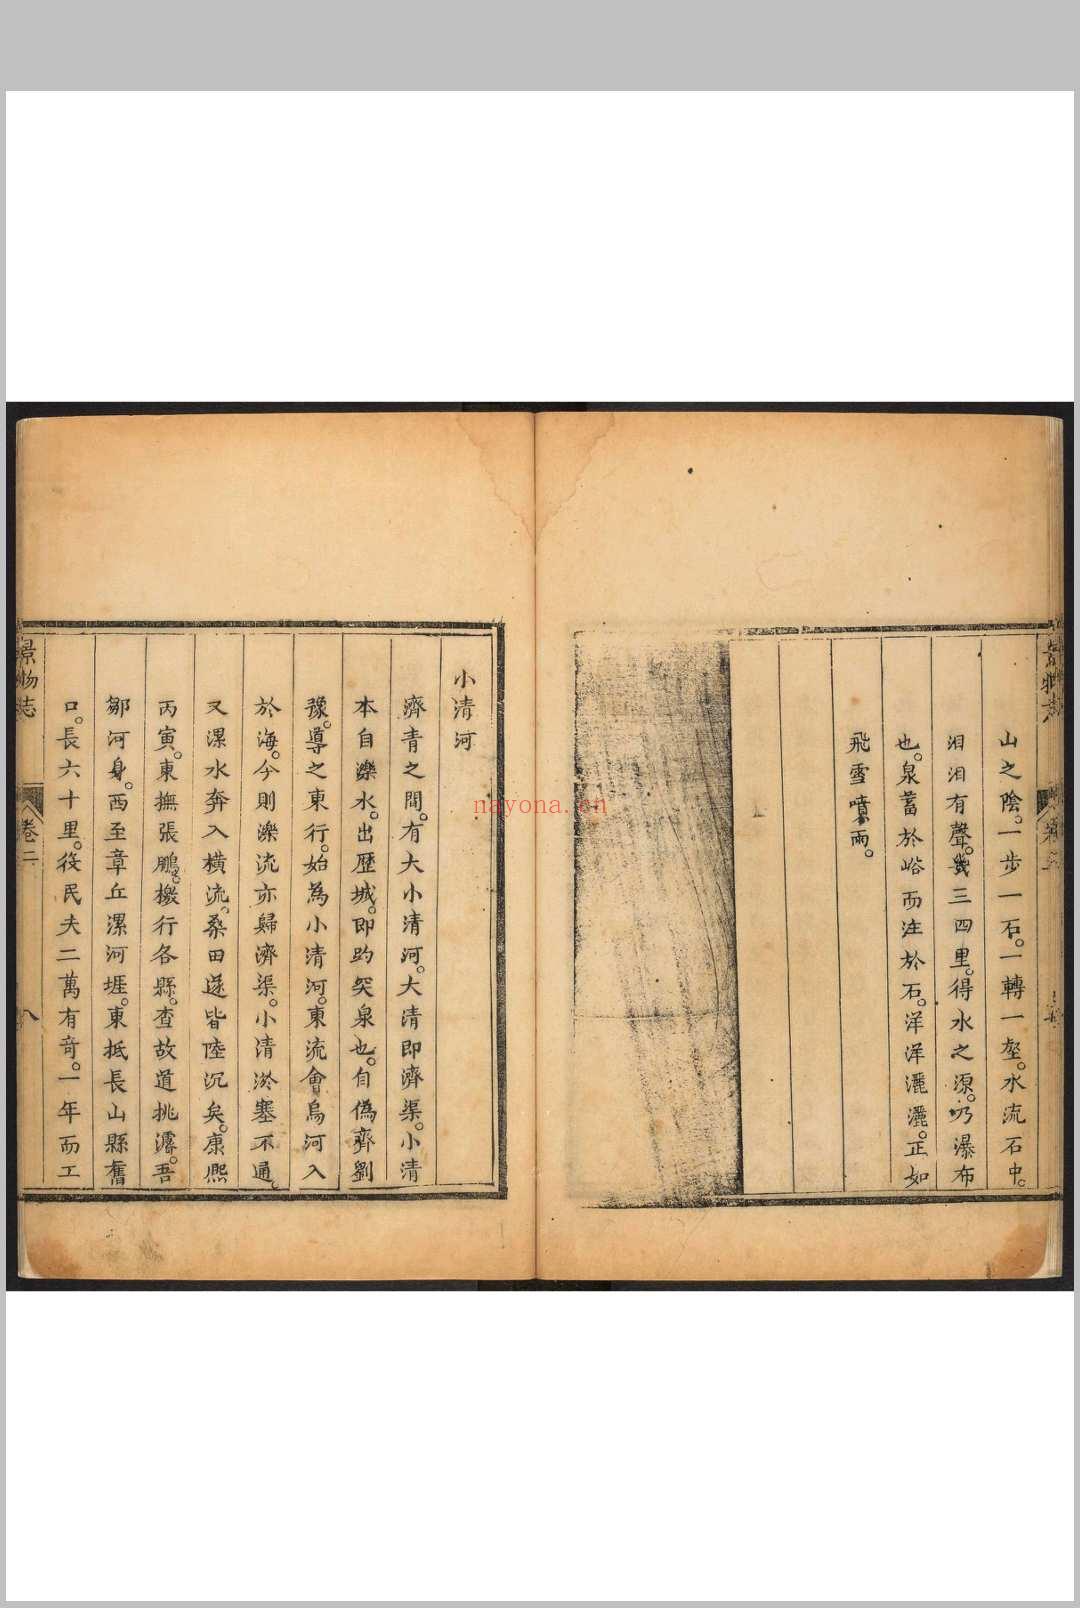 景物志
山之陰。一步一石。一轉一壑。水流石中。
汨汨有聲。幾三四里。得水之源。乃瀑布
也。泉蓄於峪而注於石。洋洋灑灑。正如
飛雪噴雨。
小清河
濟青之間。有大小清河。大清即濟渠。小清
本自濼水。出歷城。即趵突泉也。自僞齊劉
豫。導之東行。始為小清河。東流會烏河入
於海。今則濼流亦歸濟渠。小清淤塞不通。
又漯水奔入橫流。桑田遂皆陸沉矣。康熙
丙寅。東撫張鵬。檄行各縣。查故道挑濬。吾
鄒河身。西至章丘漯河堐。東抵長山縣舊
口。長六十里。役民夫二萬有奇。一年而工
景物志
卷二
八
nayona.cn